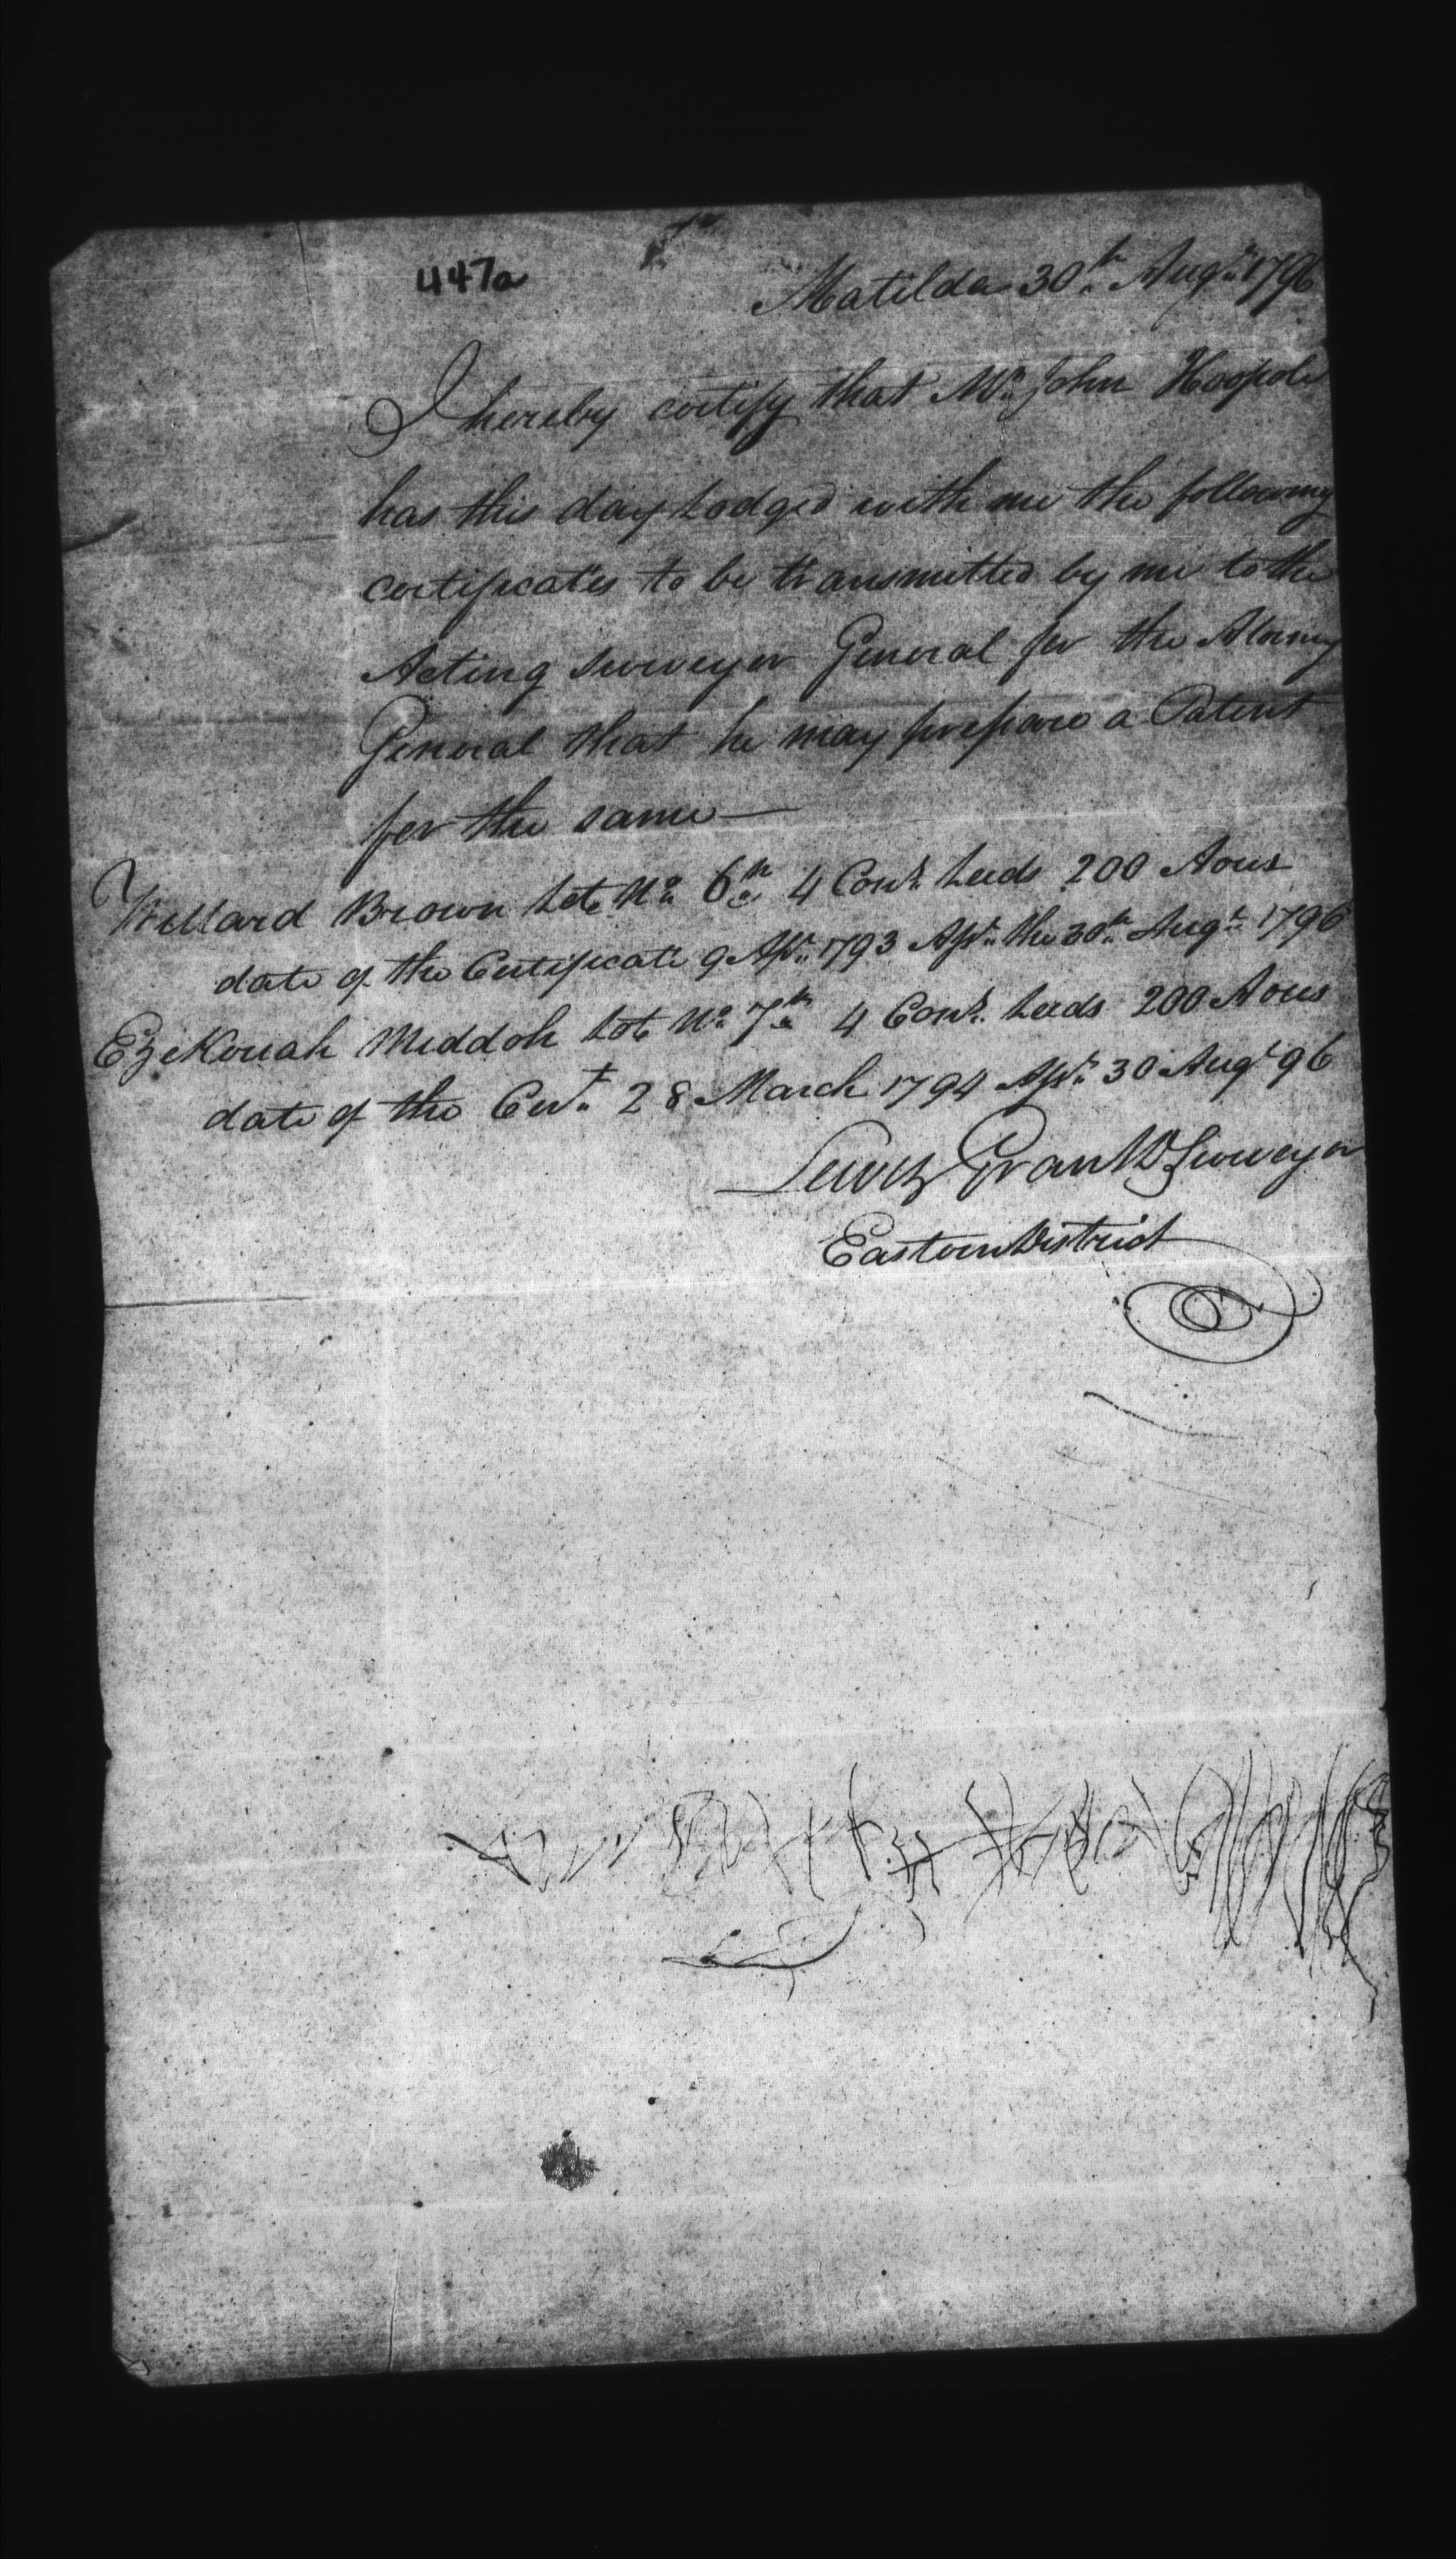 447a
Matilda 30th Augt 1796
I hereby certify that Mr John Hoople
has this day Lodged with me the following
certificates to be transmitted by me to the
Acting Surveyor General for the Atorney
General that he may prepare a Patent
for the same —
Willard Brown Lot No 6th 4 Cons. Leeds 200 Acres
date of the Certificate 9 Apr 1793 the 30th Augt 1796
Meddoh Lot No 7th 4 Cons. Leeds 200 Acres
date of the Cert. 28 March 1794 30 Augt 96
Lewis Grant D Surveyor
Eastern District